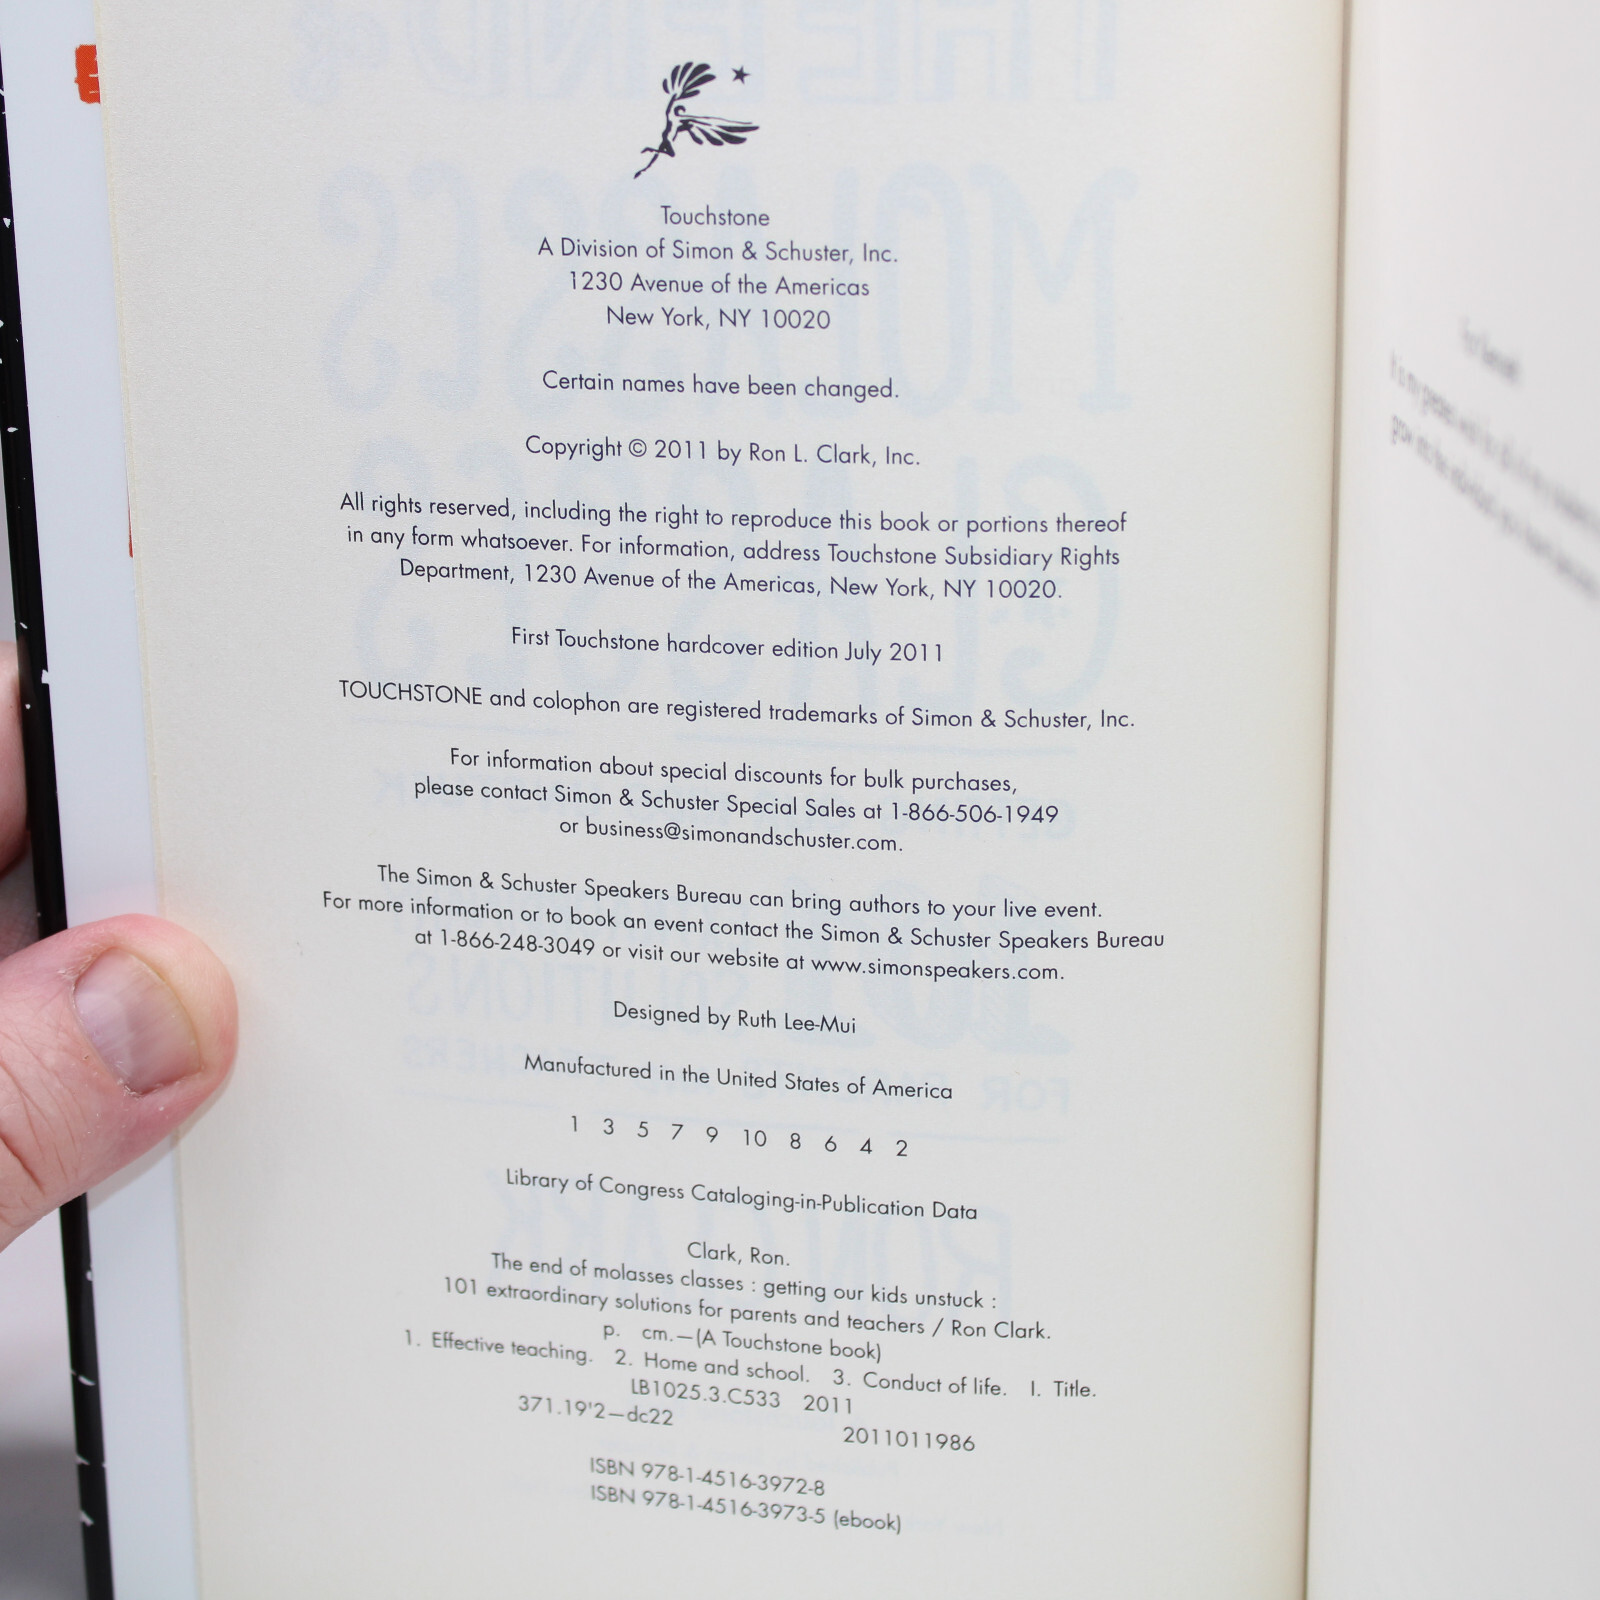 Touchstone
A Division of Simon & Schuster, Inc.
1230 Avenue of the Americas
New York, NY 10020
Certain names have been changed.
Copyright © 2011 by Ron L. Clark, Inc.
All rights reserved, including the right to reproduce this book or portions thereof
in any form whatsoever. For information, address Touchstone Subsidiary Rights
Department, 1230 Avenue of the Americas, New York, NY 10020.
First Touchstone hardcover edition July 2011
TOUCHSTONE and colophon are registered trademarks of Simon & Schuster, Inc.
For information about special discounts for bulk purchases,
please contact Simon & Schuster Special Sales at 1-866-506-1949
or business@simonandschuster.com.
The Simon & Schuster Speakers Bureau can bring authors to your live event.
For more information or to book an event contact the Simon & Schuster Speakers Bureau
at 1-866-248-3049 or visit our website at www.simonspeakers.com.
Designed by Ruth Lee-Mui
Manufactured in the United States of America
1 3 5 7 9 10 8 6 4 2
Library of Congress Cataloging-in-Publication Data
Clark, Ron.
The end of molasses classes : getting our kids unstuck :
101 extraordinary solutions for parents and teachers / Ron Clark.
p. cm.—(A Touchstone book)
1. Effective teaching. 2. Home and school. 3. Conduct of life. I. Title.
LB1025.3.C533 2011
371.19'2—dc22 2011011986
ISBN 978-1-4516-3972-8
ISBN 978-1-4516-3973-5 (ebook)